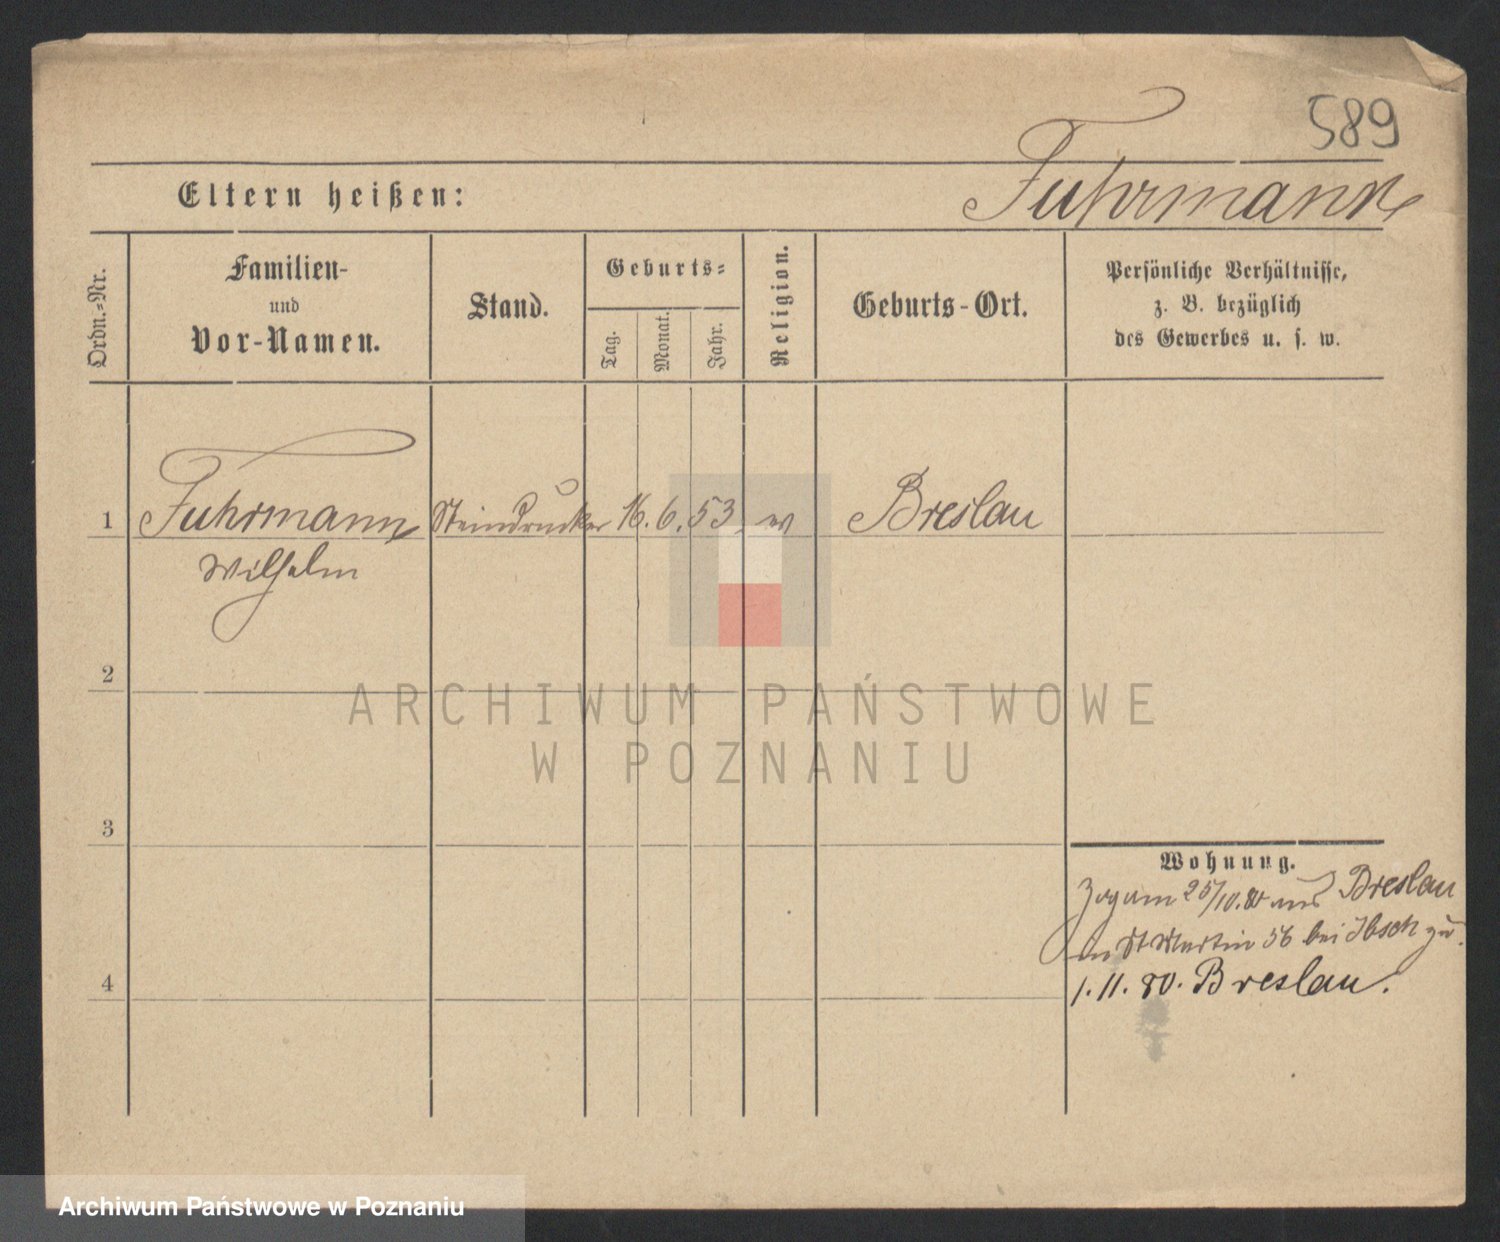 589
Fuhrmann
Eltern heißen:
Ordn.-Nr.
Familien-
und
Vor-Namen.
Stand.
Geburts-
Tag.
Monat.
Jahr.
Religion.
Geburts-Ort.
Persönliche Verhältnisse,
z. B. bezüglich
des Gewerbes u. s. w.
1
Fuhrmann Steindrucker 16. 6. 53 ev Breslau
Wilhelm
2
ARCHIWUM PAŃSTWOWE
W POZNANIU
3
Wohnung.
Zog am 25/10.80 aus Breslau
St Martin 56 bei Ibsch zu.
4
1.11.80. Breslau.
Archiwum Państwowe w Poznaniu